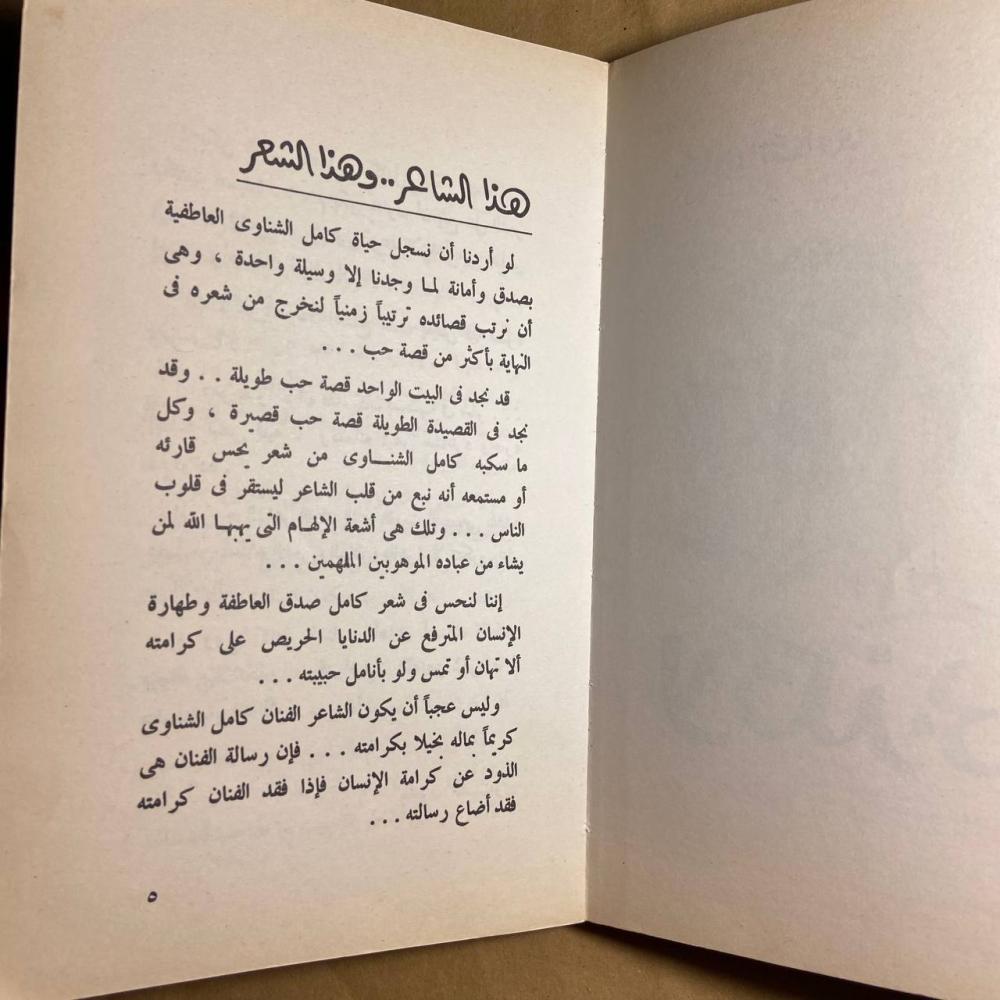 هذا الشاعر..وهذا الشعر
لو أردنا أن نسجل حياة كامل الشناوى العاطفية
بصدق وأمانة لما وجدنا إلا وسيلة واحدة ، وهى
أن نرتب قصائده ترتيباً زمنياً لنخرج من شعره فى
النهاية بأكثر من قصة حب ...
قد نجد فى البيت الواحد قصة حب طويلة .. وقد
نجد فى القصيدة الطويلة قصة حب قصيرة ، وكل
ما سكبه كامل الشنـاوى من شعر يحس قارئه
أو مستمعه أنه نبع من قلب الشاعر ليستقر فى قلوب
الناس ... وتلك هى أشعة الإلهام التى يهبها الله لمن
يشاء من عباده الموهوبين الملهمين ...
إننا لنحس فى شعر كامل صدق العاطفة وطهارة
الإنسان المترفع عن الدنايا الحريص على كرامته
ألا تهان أو تمس ولو بأنامل حبيبته ...
وليس عجباً أن يكون الشاعر الفنان كامل الشناوى
كريماً بماله بخيلا بكرامته ... فإن رسالة الفنان هى
الذود عن كرامة الإنسان فإذا فقد الفنان كرامته
فقد أضاع رسالته ...
٥